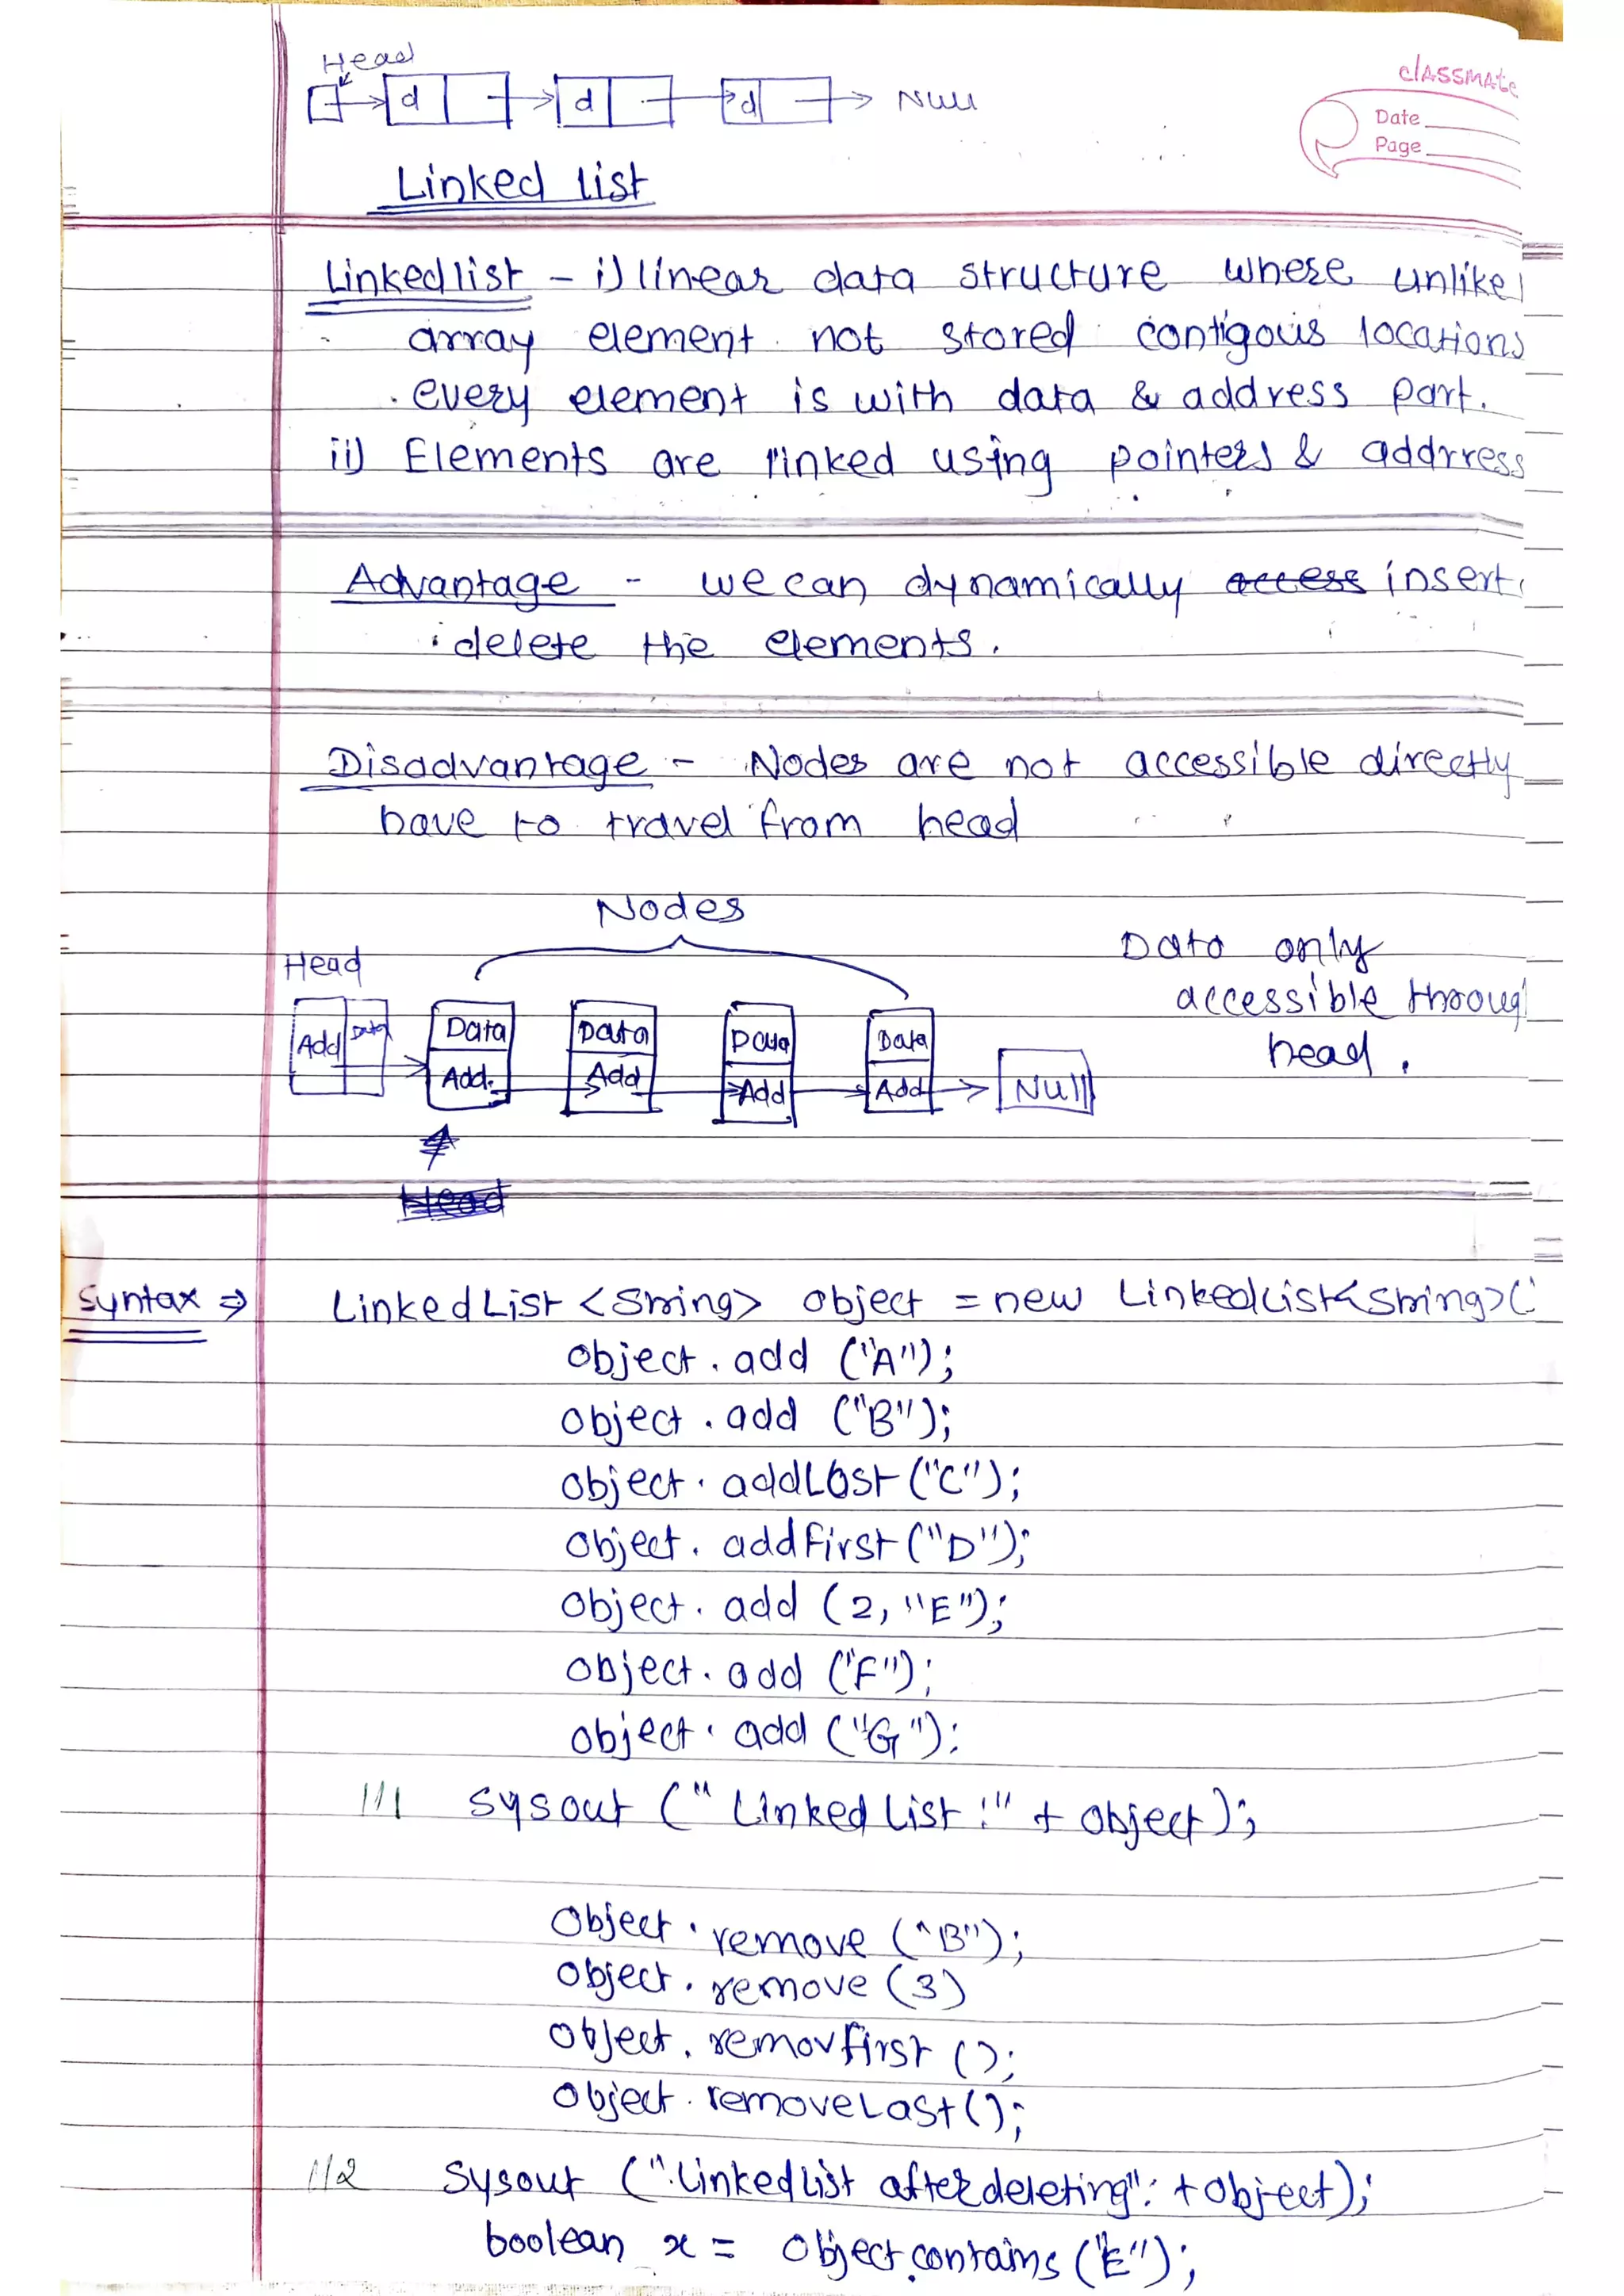 Head
d d d Null
classmate
Date
Page
Linked list
Linkedlist - i) linear data structure where unlike
array element not stored contigous locations
every element is with data & address part.
ii) Elements are linked using pointers & addrress
Advantage - we can dynamically access insert
delete the elements.
Disadvantage - Nodes are not accessible directly
have to travel from head
Nodes
Data only
accessible throoug
head.
Head
Add Data Data Data Data Data
Add. Add Add Add Null
Head
Syntax ⇒ LinkedList <String> object = new LinkedList<String>(
object.add ("A");
object.add ("B");
object.addLast ("C");
object.addFirst ("D");
object.add (2, "E");
object.add ("F");
object.add ("G");
//1 sysout ("Linked List:" + object);
object.remove ("B");
object.remove (3)
object.removfirst ();
object.removeLast();
//2 sysout ("Linkedlist after deleting": + object);
boolean x = object.contains ("E");